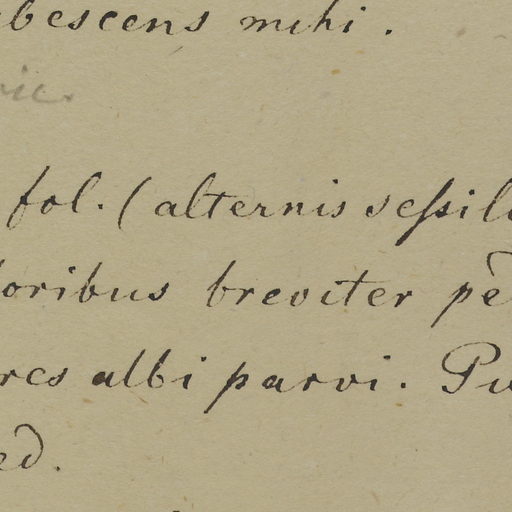 bescens mihi.
fol. (alternis sessil
oribus breviter pe
res albi parvi. Pu
ed.